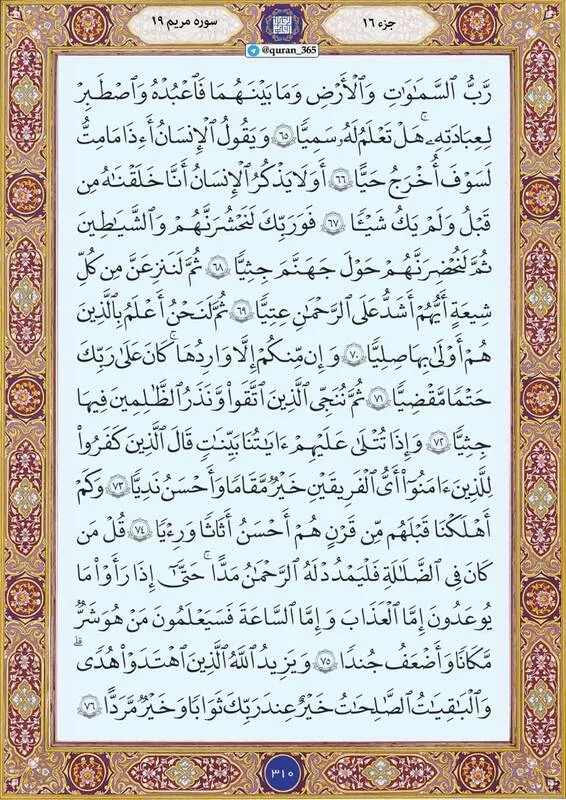 جزء ۱۶
سوره مریم ۱۹
@quran_365
رَّبُّ ٱلسَّمَٰوَٰتِ وَٱلْأَرْضِ وَمَا بَيْنَهُمَا فَٱعْبُدْهُ وَٱصْطَبِرْ
لِعِبَٰدَتِهِۦۚ هَلْ تَعْلَمُ لَهُۥ سَمِيًّا ۶۵ وَيَقُولُ ٱلْإِنسَٰنُ أَءِذَا مَا مِتُّ
لَسَوْفَ أُخْرَجُ حَيًّا ۶۶ أَوَلَا يَذْكُرُ ٱلْإِنسَٰنُ أَنَّا خَلَقْنَٰهُ مِن
قَبْلُ وَلَمْ يَكُ شَيْـًٔا ۶۷ فَوَرَبِّكَ لَنَحْشُرَنَّهُمْ وَٱلشَّيَٰطِينَ
ثُمَّ لَنُحْضِرَنَّهُمْ حَوْلَ جَهَنَّمَ جِثِيًّا ۶۸ ثُمَّ لَنَنزِعَنَّ مِن كُلِّ
شِيعَةٍ أَيُّهُمْ أَشَدُّ عَلَى ٱلرَّحْمَٰنِ عِتِيًّا ۶۹ ثُمَّ لَنَحْنُ أَعْلَمُ بِٱلَّذِينَ
هُمْ أَوْلَىٰ بِهَا صِلِيًّا ۷۰ وَإِن مِّنكُمْ إِلَّا وَارِدُهَاۚ كَانَ عَلَىٰ رَبِّكَ
حَتْمًا مَّقْضِيًّا ۷۱ ثُمَّ نُنَجِّى ٱلَّذِينَ ٱتَّقَوا۟ وَّنَذَرُ ٱلظَّٰلِمِينَ فِيهَا
جِثِيًّا ۷۲ وَإِذَا تُتْلَىٰ عَلَيْهِمْ ءَايَٰتُنَا بَيِّنَٰتٍ قَالَ ٱلَّذِينَ كَفَرُوا۟
لِلَّذِينَ ءَامَنُوٓا۟ أَىُّ ٱلْفَرِيقَيْنِ خَيْرٌ مَّقَامًا وَأَحْسَنُ نَدِيًّا ۷۳ وَكَمْ
أَهْلَكْنَا قَبْلَهُم مِّن قَرْنٍ هُمْ أَحْسَنُ أَثَٰثًا وَرِءْيًا ۷۴ قُلْ مَن
كَانَ فِى ٱلضَّلَٰلَةِ فَلْيَمْدُدْ لَهُ ٱلرَّحْمَٰنُ مَدًّاۚ حَتَّىٰٓ إِذَا رَأَوْا۟ مَا
يُوعَدُونَ إِمَّا ٱلْعَذَابَ وَإِمَّا ٱلسَّاعَةَ فَسَيَعْلَمُونَ مَنْ هُوَ شَرٌّ
مَّكَانًا وَأَضْعَفُ جُندًا ۷۵ وَيَزِيدُ ٱللَّهُ ٱلَّذِينَ ٱهْتَدَوْا۟ هُدًىۗ
وَٱلْبَٰقِيَٰتُ ٱلصَّٰلِحَٰتُ خَيْرٌ عِندَ رَبِّكَ ثَوَابًا وَخَيْرٌ مَّرَدًّا ۷۶
۳۱۰